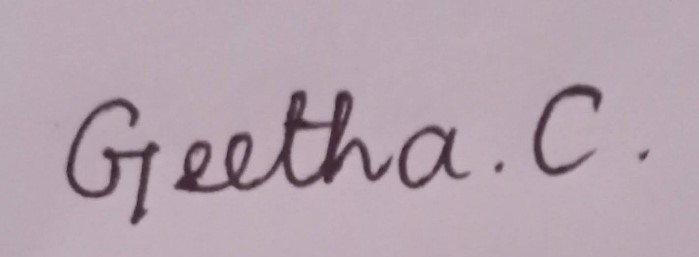 Geetha. C.